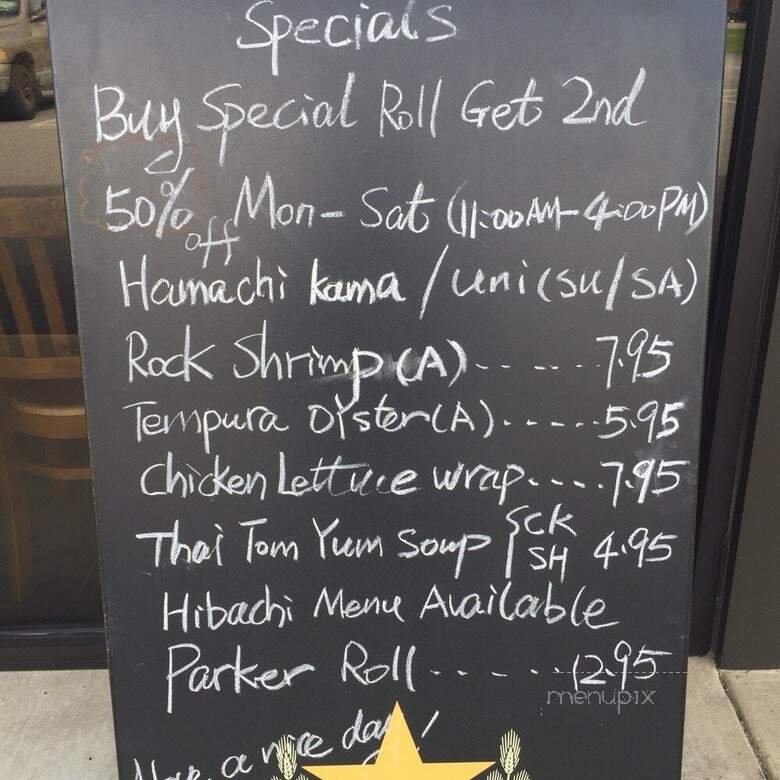 Specials
Buy Special Roll Get 2nd
50% off Mon- Sat (11:00AM-4:00PM)
Hamachi kama / uni (SU/SA)
Rock Shrimp (A) - - - - - - 7.95
Tempura Oyster (A) - - - - - 5.95
Chicken Lettuce wrap - - - - 7.95
Thai Tom Yum Soup { CK SH 4.95
Hibachi Menu Available
Parker Roll - - - - - 12.95
menupix
Have a nice day!